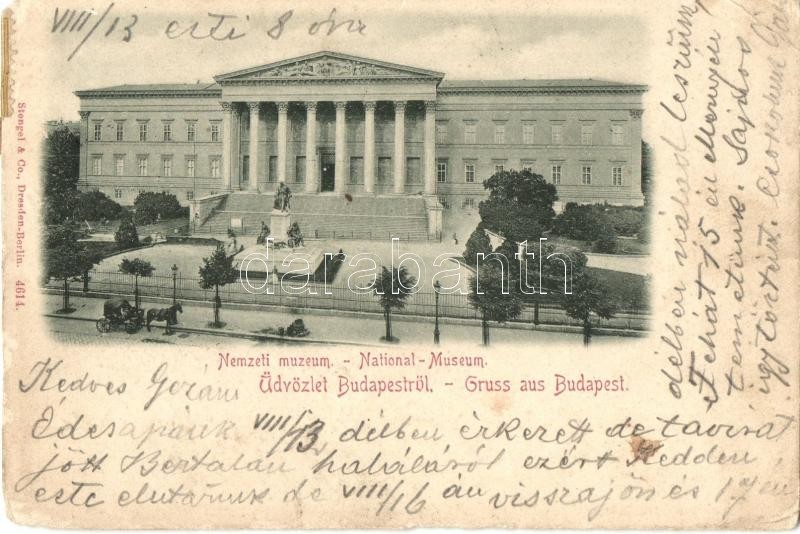 VIII/13 esti 8 óra
Stengel & Co., Dresden-Berlin. 4614.
darabanth
Nemzeti muzeum. - National-Museum.
Üdvözlet Budapestről. - Gruss aus Budapest.
Kedves
Édesapánk VIII/13 délben érkezett de táviratot
jött Bertalan haláláról ezért Kedden
este elutazunk de VIII/16 án visszajön és 17 én
délben nálad leszünk
Tehát 15 én
temetünk. Sajnos
így történt. Csókol